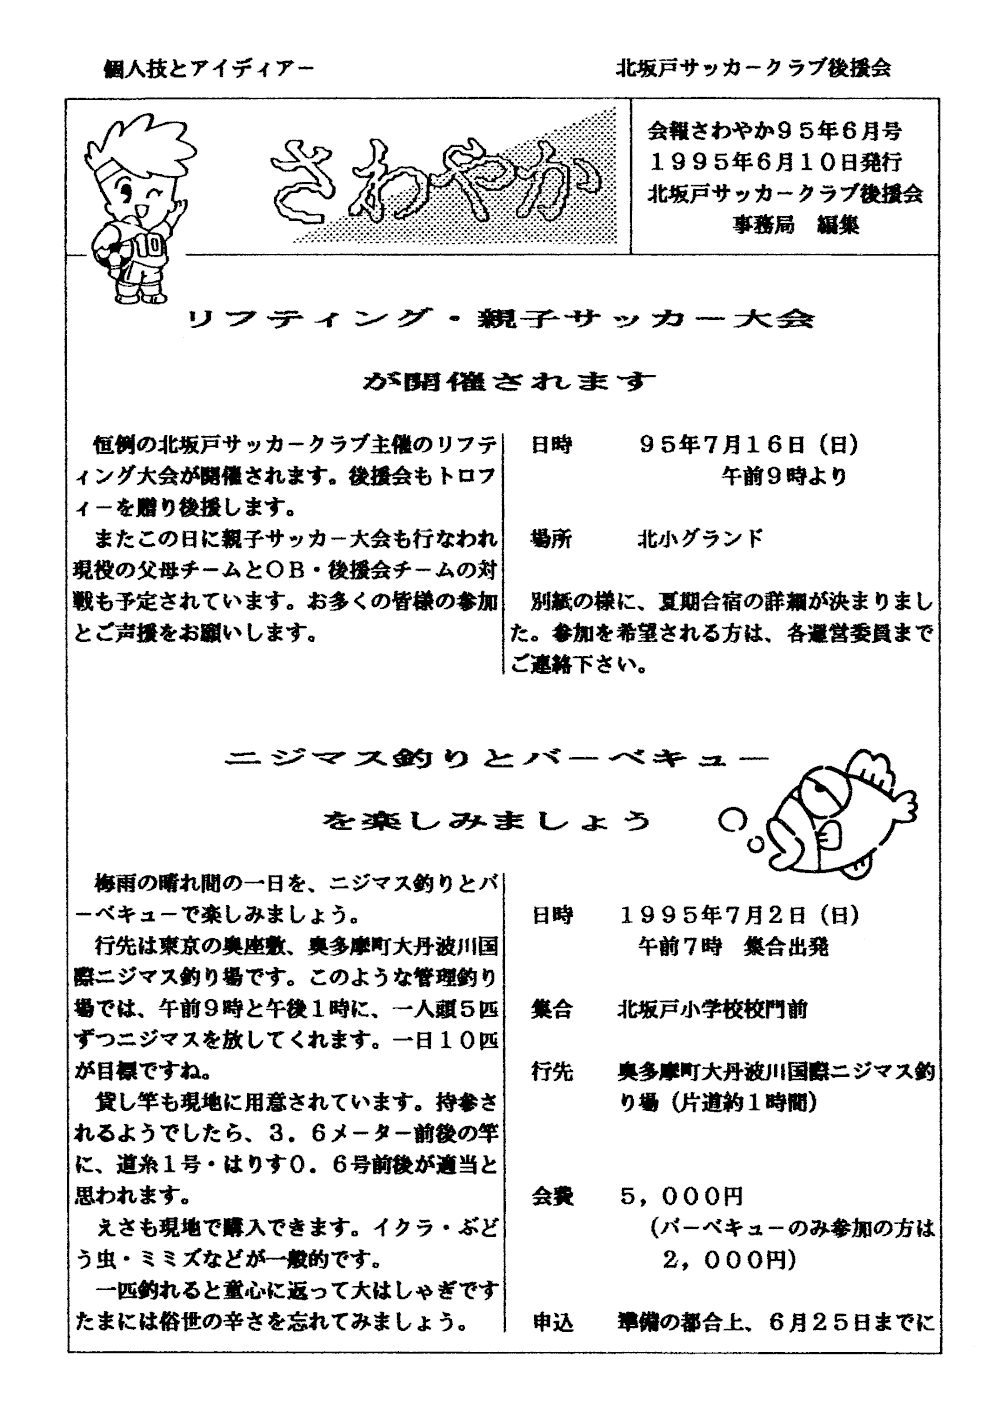 個人技とアイディアー
北坂戸サッカークラブ後援会
さわやか
10
会報さわやか95年6月号
1995年6月10日発行
北坂戸サッカークラブ後援会
事務局　編集
リフティング・親子サッカー大会
が開催されます
恒例の北坂戸サッカークラブ主催のリフテ
ィング大会が開催されます。後援会もトロフ
ィーを贈り後援します。
またこの日に親子サッカー大会も行なわれ
現役の父母チームとOB・後援会チームの対
戦も予定されています。お多くの皆様の参加
とご声援をお願いします。
日時　95年7月16日（日）
午前9時より
場所　北小グランド
別紙の様に、夏期合宿の詳細が決まりまし
た。参加を希望される方は、各運営委員まで
ご連絡下さい。
ニジマス釣りとバーベキュー
を楽しみましょう
梅雨の晴れ間の一日を、ニジマス釣りとバ
ーベキューで楽しみましょう。
行先は東京の奥座敷、奥多摩町大丹波川国
際ニジマス釣り場です。このような管理釣り
場では、午前9時と午後1時に、一人頭5匹
ずつニジマスを放してくれます。一日10匹
が目標ですね。
貸し竿も現地に用意されています。持参さ
れるようでしたら、3．6メーター前後の竿
に、道糸1号・はりす0．6号前後が適当と
思われます。
えさも現地で購入できます。イクラ・ぶど
う虫・ミミズなどが一般的です。
一匹釣れると童心に返って大はしゃぎです
たまには俗世の辛さを忘れてみましょう。
日時　1995年7月2日（日）
午前7時　集合出発
集合　北坂戸小学校校門前
行先　奥多摩町大丹波川国際ニジマス釣
り場（片道約1時間）
会費　5，000円
（バーベキューのみ参加の方は
2，000円）
申込　準備の都合上、6月25日までに